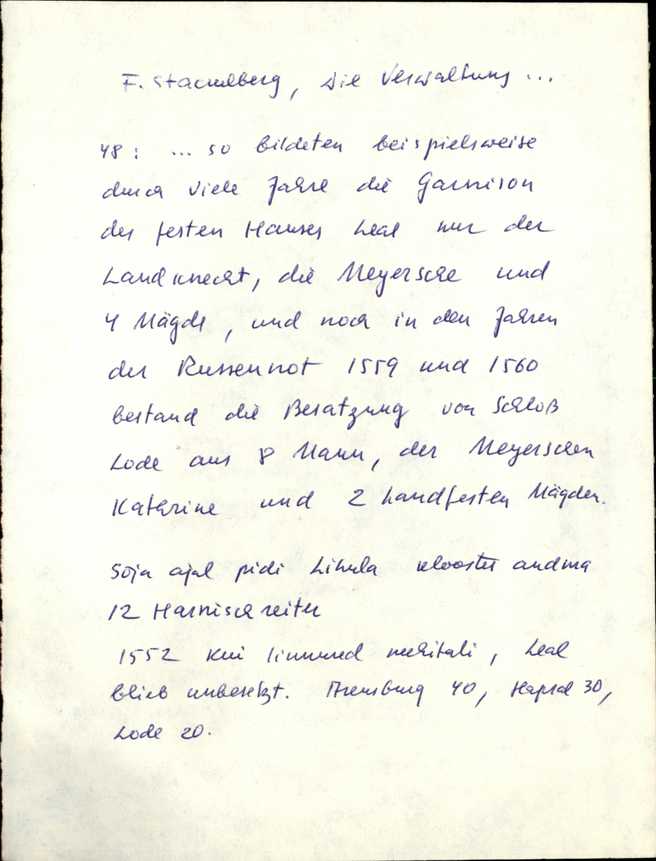 F. Stackelberg, Die Verwaltung ...
48: ... so bildeten beispielsweise
durch viele Jahre die Garnison
des festen Hauses Leal nur der
Landknecht, die Meyersche und
4 Mägde, und noch in den Jahren
der Russennot 1559 und 1560
bestand die Besatzung von Schloß
Lode aus 8 Mann, der Meyerschen
Katharine und 2 handfesten Mägden.
Soja ajal pidi Lihula klooster andma
12 Harnischreiter
1552 kui linnused mehitati, Leal
blieb unbesetzt. Arensburg 40, Hapsal 30,
Lode 20.